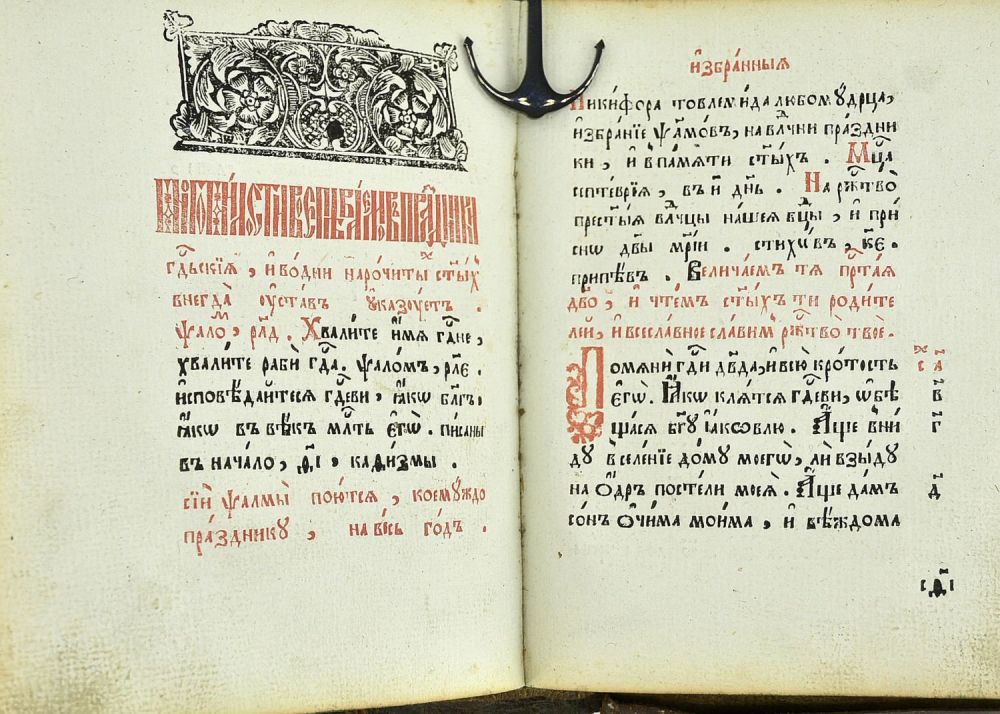 гⷭ҇ьскїѧ , и҆ во дни нарочиты ст҃ыⷯ
внегда̀ оу҆ста́въ оу҆казꙋ́етъ .
ѱало́ⷨ , рл҃д . Хвали́те и҆́мѧ гⷭ҇не ,
хвали́те раби̑ гⷭ҇а . ѱало́мъ , рл҃е .
и҆сповѣ́дайтесѧ гⷭ҇еви , ꙗ҆́кѡ бл҃гъ ,
ꙗ҆́кѡ въ вѣ́къ млⷭ҇ть є҆гѡ̀ . писаны
въ нача́ло , д҃і , каѳи́змы .
сїѝ ѱалмы̀ пою́тсѧ , коемꙋ́ждо
пра́зднику , на ве́сь го́дъ .
и҆збра́нныѧ
Никифора любомꙋ́дрца ,
и҆збра́нїе ѱⷧ҇амо́въ , на влⷣчни пра́здни
ки , и҆ в па́мѧти ст҃ы́хъ . Мцⷭ҇а
септе́врїѧ , въ и҃ дн҃ь . На ржⷭ҇тво̀
прест҃ы́ѧ влⷣчцы на́шеѧ бцⷣы , и҆ при
снѡ дв҃ы мр҃і́и . сти́хⷡ҇въ , к҃є .
припѣ́въ . Велича́емъ тѧ̀ прⷭ҇таѧ
дв҃о , и҆ чте́мъ ст҃ы́хъ ти роди́те
лей , и҆ всесла́вное сла́вим ржⷭ҇тво̀ твоѐ .
Помѧнѝ гⷭ҇и дв҃да , и҆ всю̀ кро́тость
є҆гѡ̀ . Ꙗ҆́кѡ клѧ́тсѧ гⷭ҇еви , ѡ҆бѣ
ща́сѧ бг҃ꙋ і҆а́кѡвлю . А҆́ще вни́
дꙋ в селе́нїе до́мꙋ моегѡ̀ , ли взы́дꙋ
на ѻ҆́дръ посте́ли моеѧ̀ . А҆́ще да́мъ
со́нъ ѻ҆чи́ма мои́ма , и҆ вѣ́ждома
а҃
в҃
г҃
д҃